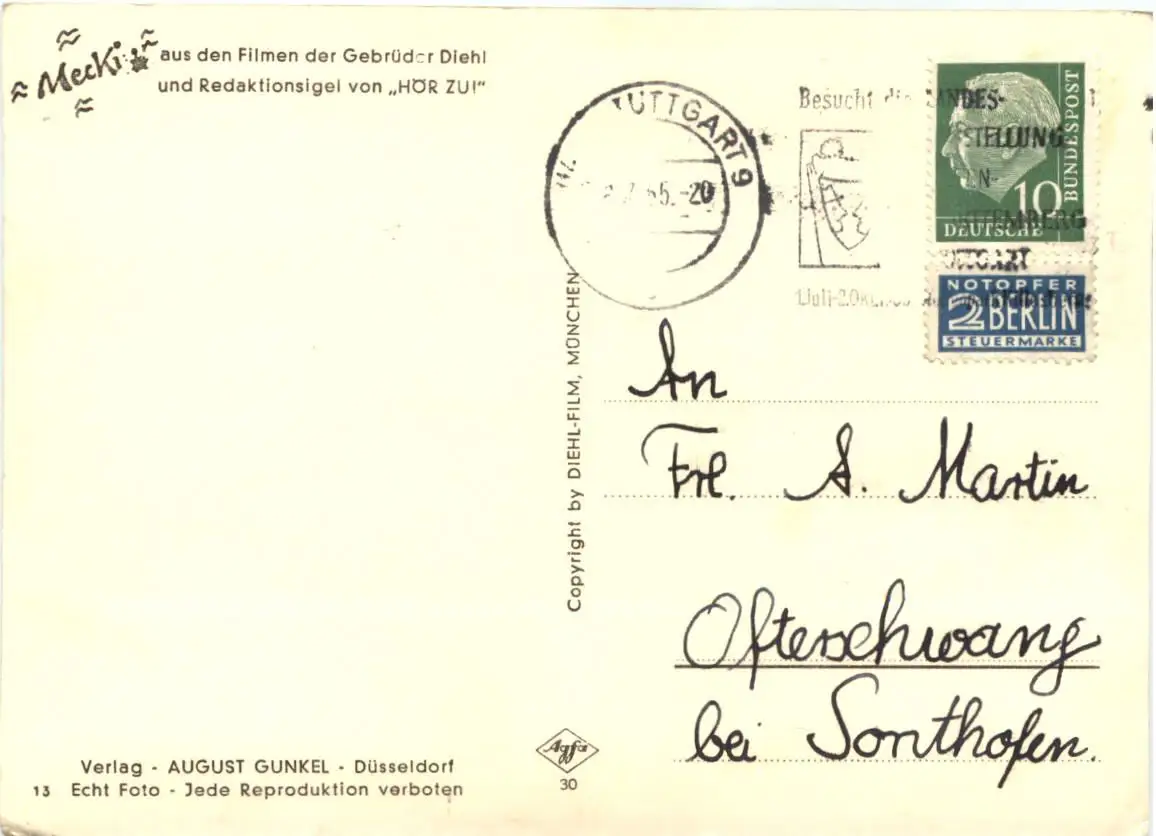 Mecki aus den Filmen der Gebrüder Diehl
und Redaktionsigel von „HÖR ZU!"
STUTTGART 9
55.-20
Besucht die LANDES-
AUSSTELLUNG
WÜRTTEMBERG
STUTTGART
10
DEUTSCHE
BUNDESPOST
NOTOPFER
2 BERLIN
STEUERMARKE
An
Frl. S. Martin
Ofterschwang
bei Sonthofen.
Copyright by DIEHL-FILM, MÜNCHEN
Verlag - AUGUST GUNKEL - Düsseldorf
13 Echt Foto - Jede Reproduktion verboten
Agfa
30